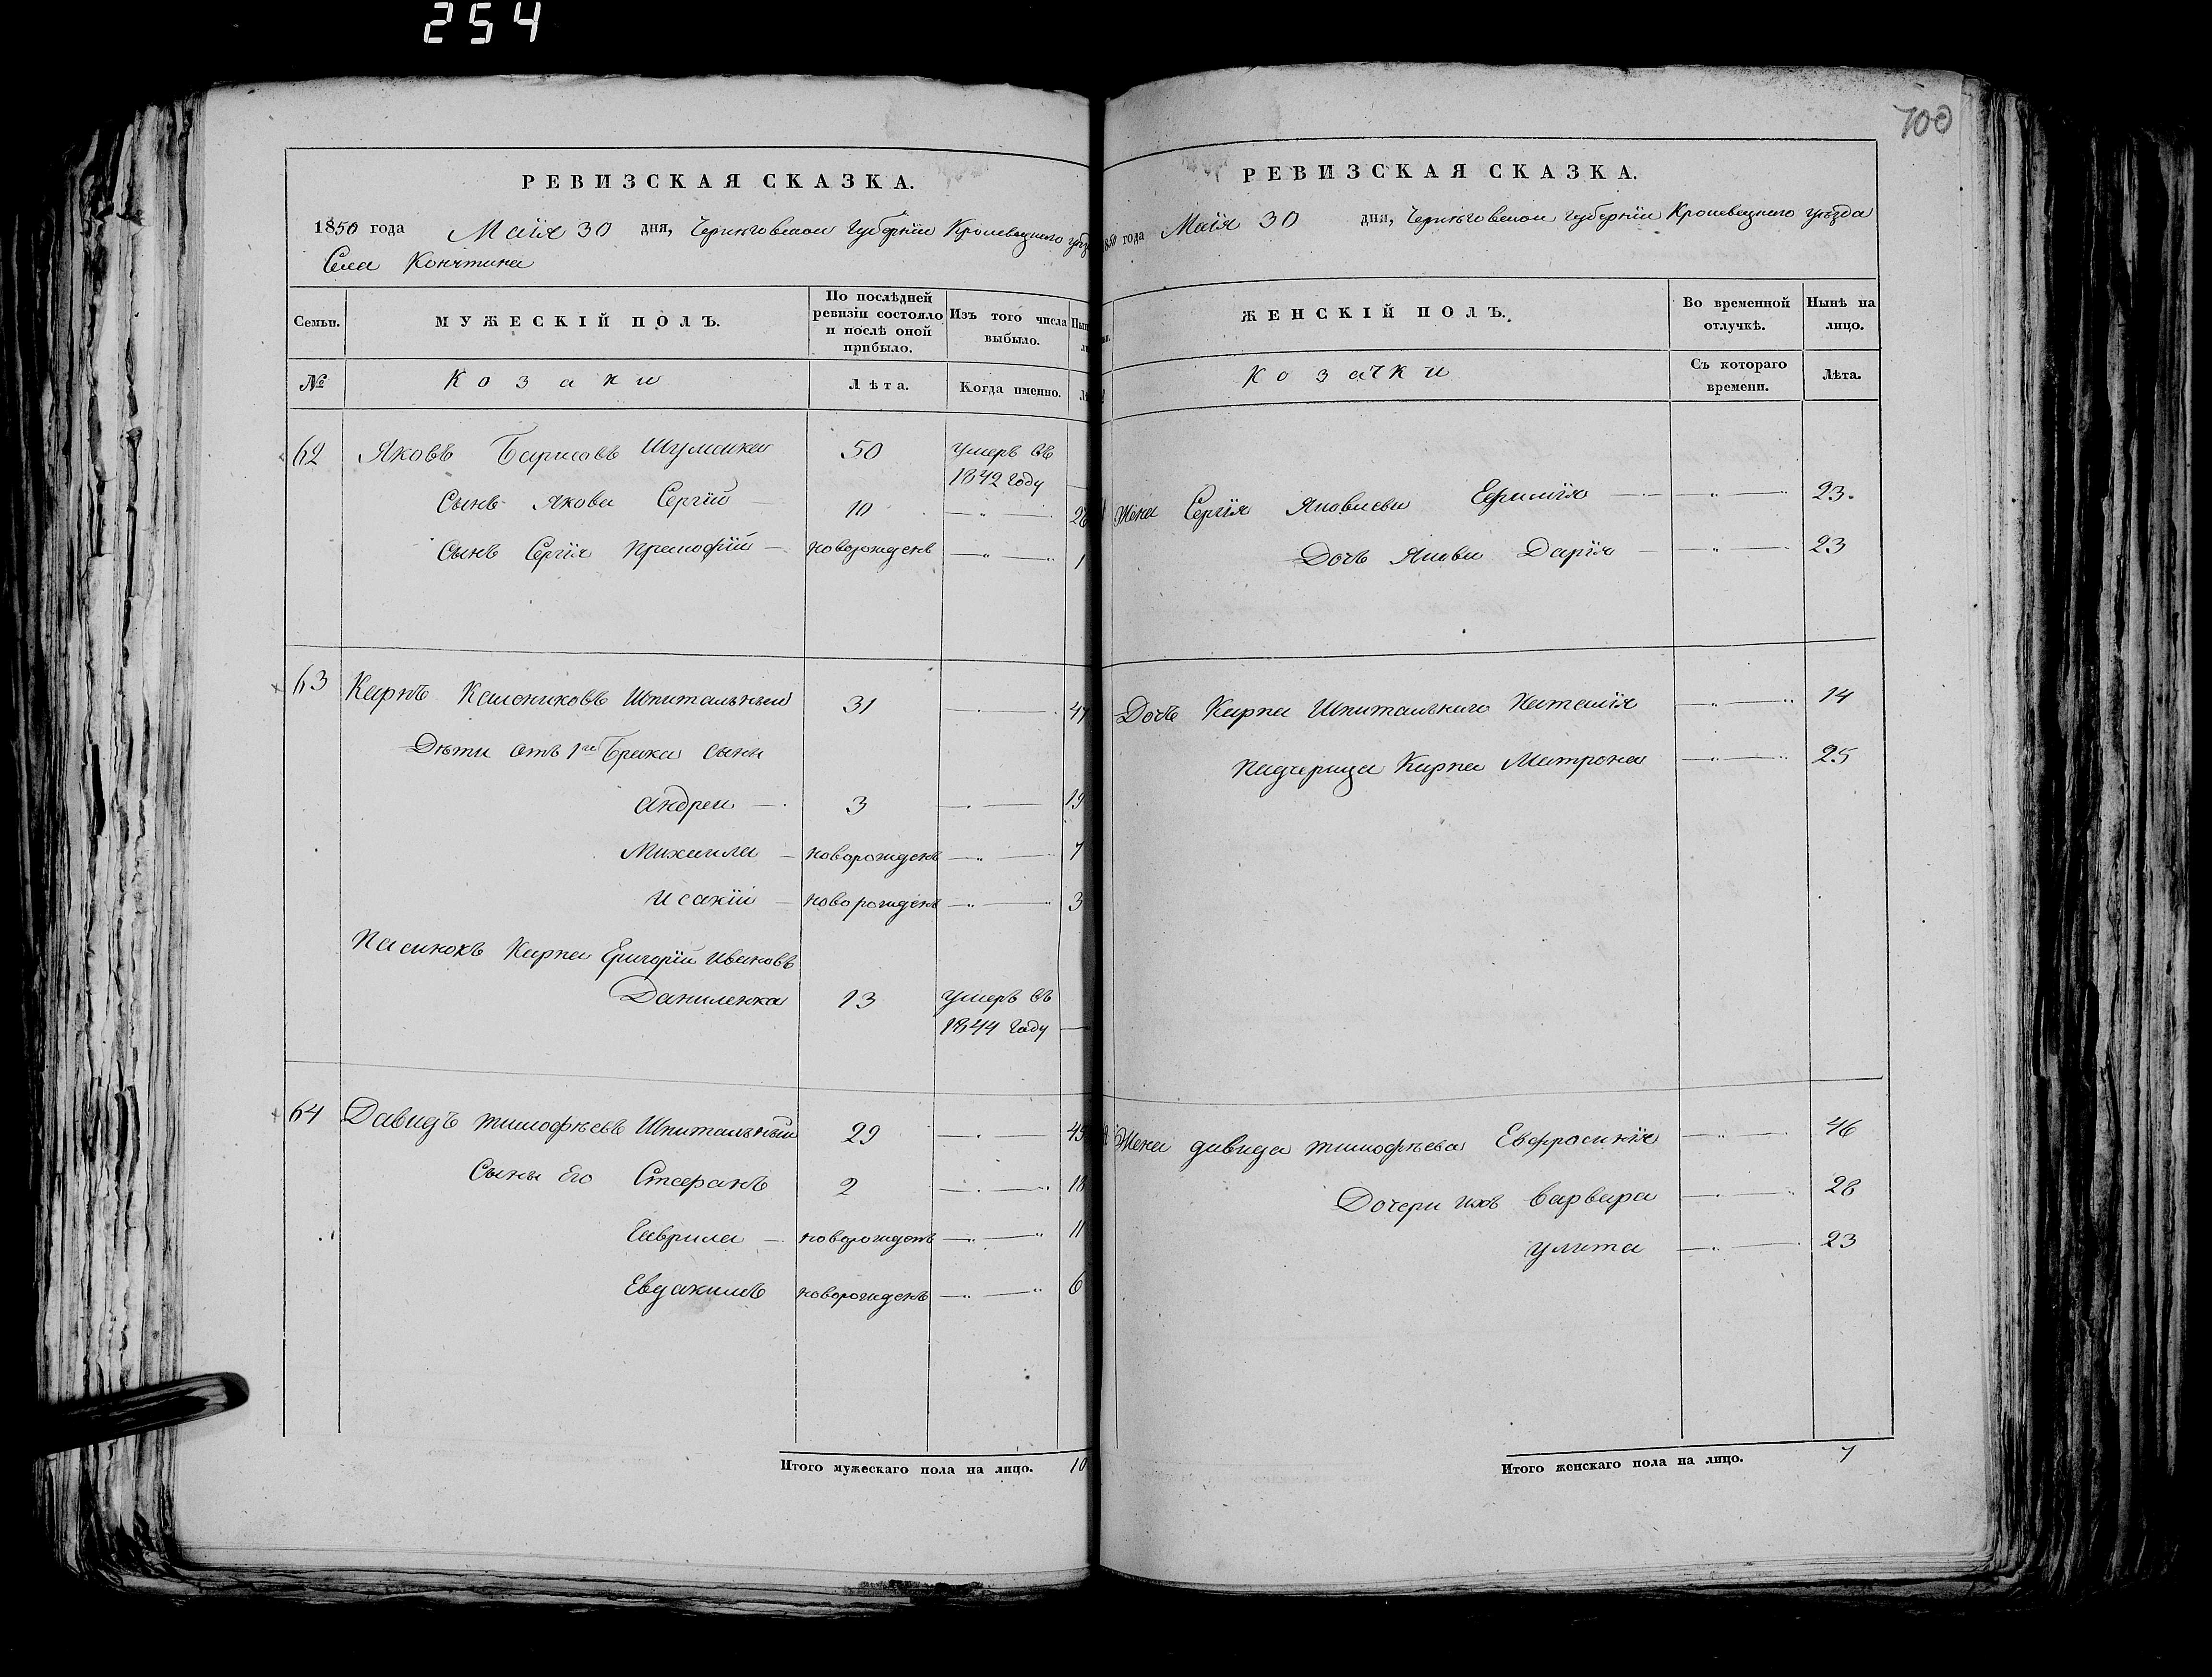 254
700
РЕВИЗСКАЯ СКАЗКА.
1850 года Маія 30 дня, Черниговской Губерніи Кролевецкого уѣз
Села
Семьи. МУЖЕСКІЙ ПОЛЪ. По послѣдней ревизіи состояло и послѣ оной прибыло. Изъ того числа выбыло.
№ Козаки Лѣта. Когда именно.
62 Яковъ Барисовъ Шуменко 50 умеръ въ
1842 году
Сынъ Якова Сергій 10
Сынъ Сергія Прокофій новорожденъ 1
63 Карпъ Калениковъ Шпитальный 31 47
Дѣти отъ 1го Брака сыни
Андреи 3 19
Михаила новорожденъ 7
Исакій новорожденъ 3
Пасинокъ Карпа Григорій Ивановъ
Даниленка 13 умеръ въ
1844 году
64 Давидъ Тимофѣевъ Шпитальный 29 45
Сыны Его Стефанъ 2 18
Гаврила новорожденъ 11
Евдакимъ новорожденъ 6
Итого мужескаго пола на лицо. 10
РЕВИЗСКАЯ СКАЗКА.
1850 года Маія 30 дня, Черниговской Губерніи Кролевецкого уѣзда
ЖЕНСКІЙ ПОЛЪ. Во временной отлучкѣ. Нынѣ на лицо.
Козачки Съ котораго времени. Лѣта.
Жена Сергія Яковлева Ефимія 23.
Дочь Якова Дарія 23
Дочь Карпа Шпитального Наталія 14
Падчерица Карпа Матрона 25
Жена Давида Тимофѣева Евфросинія 46
Дочери ихъ Варвара 28
Улита 23
Итого женскаго пола на лицо. 7